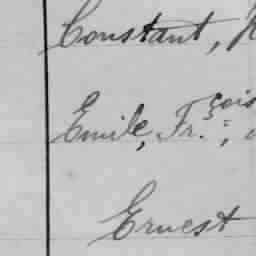 Constant,
Emile, Fr.çois;
Ernest